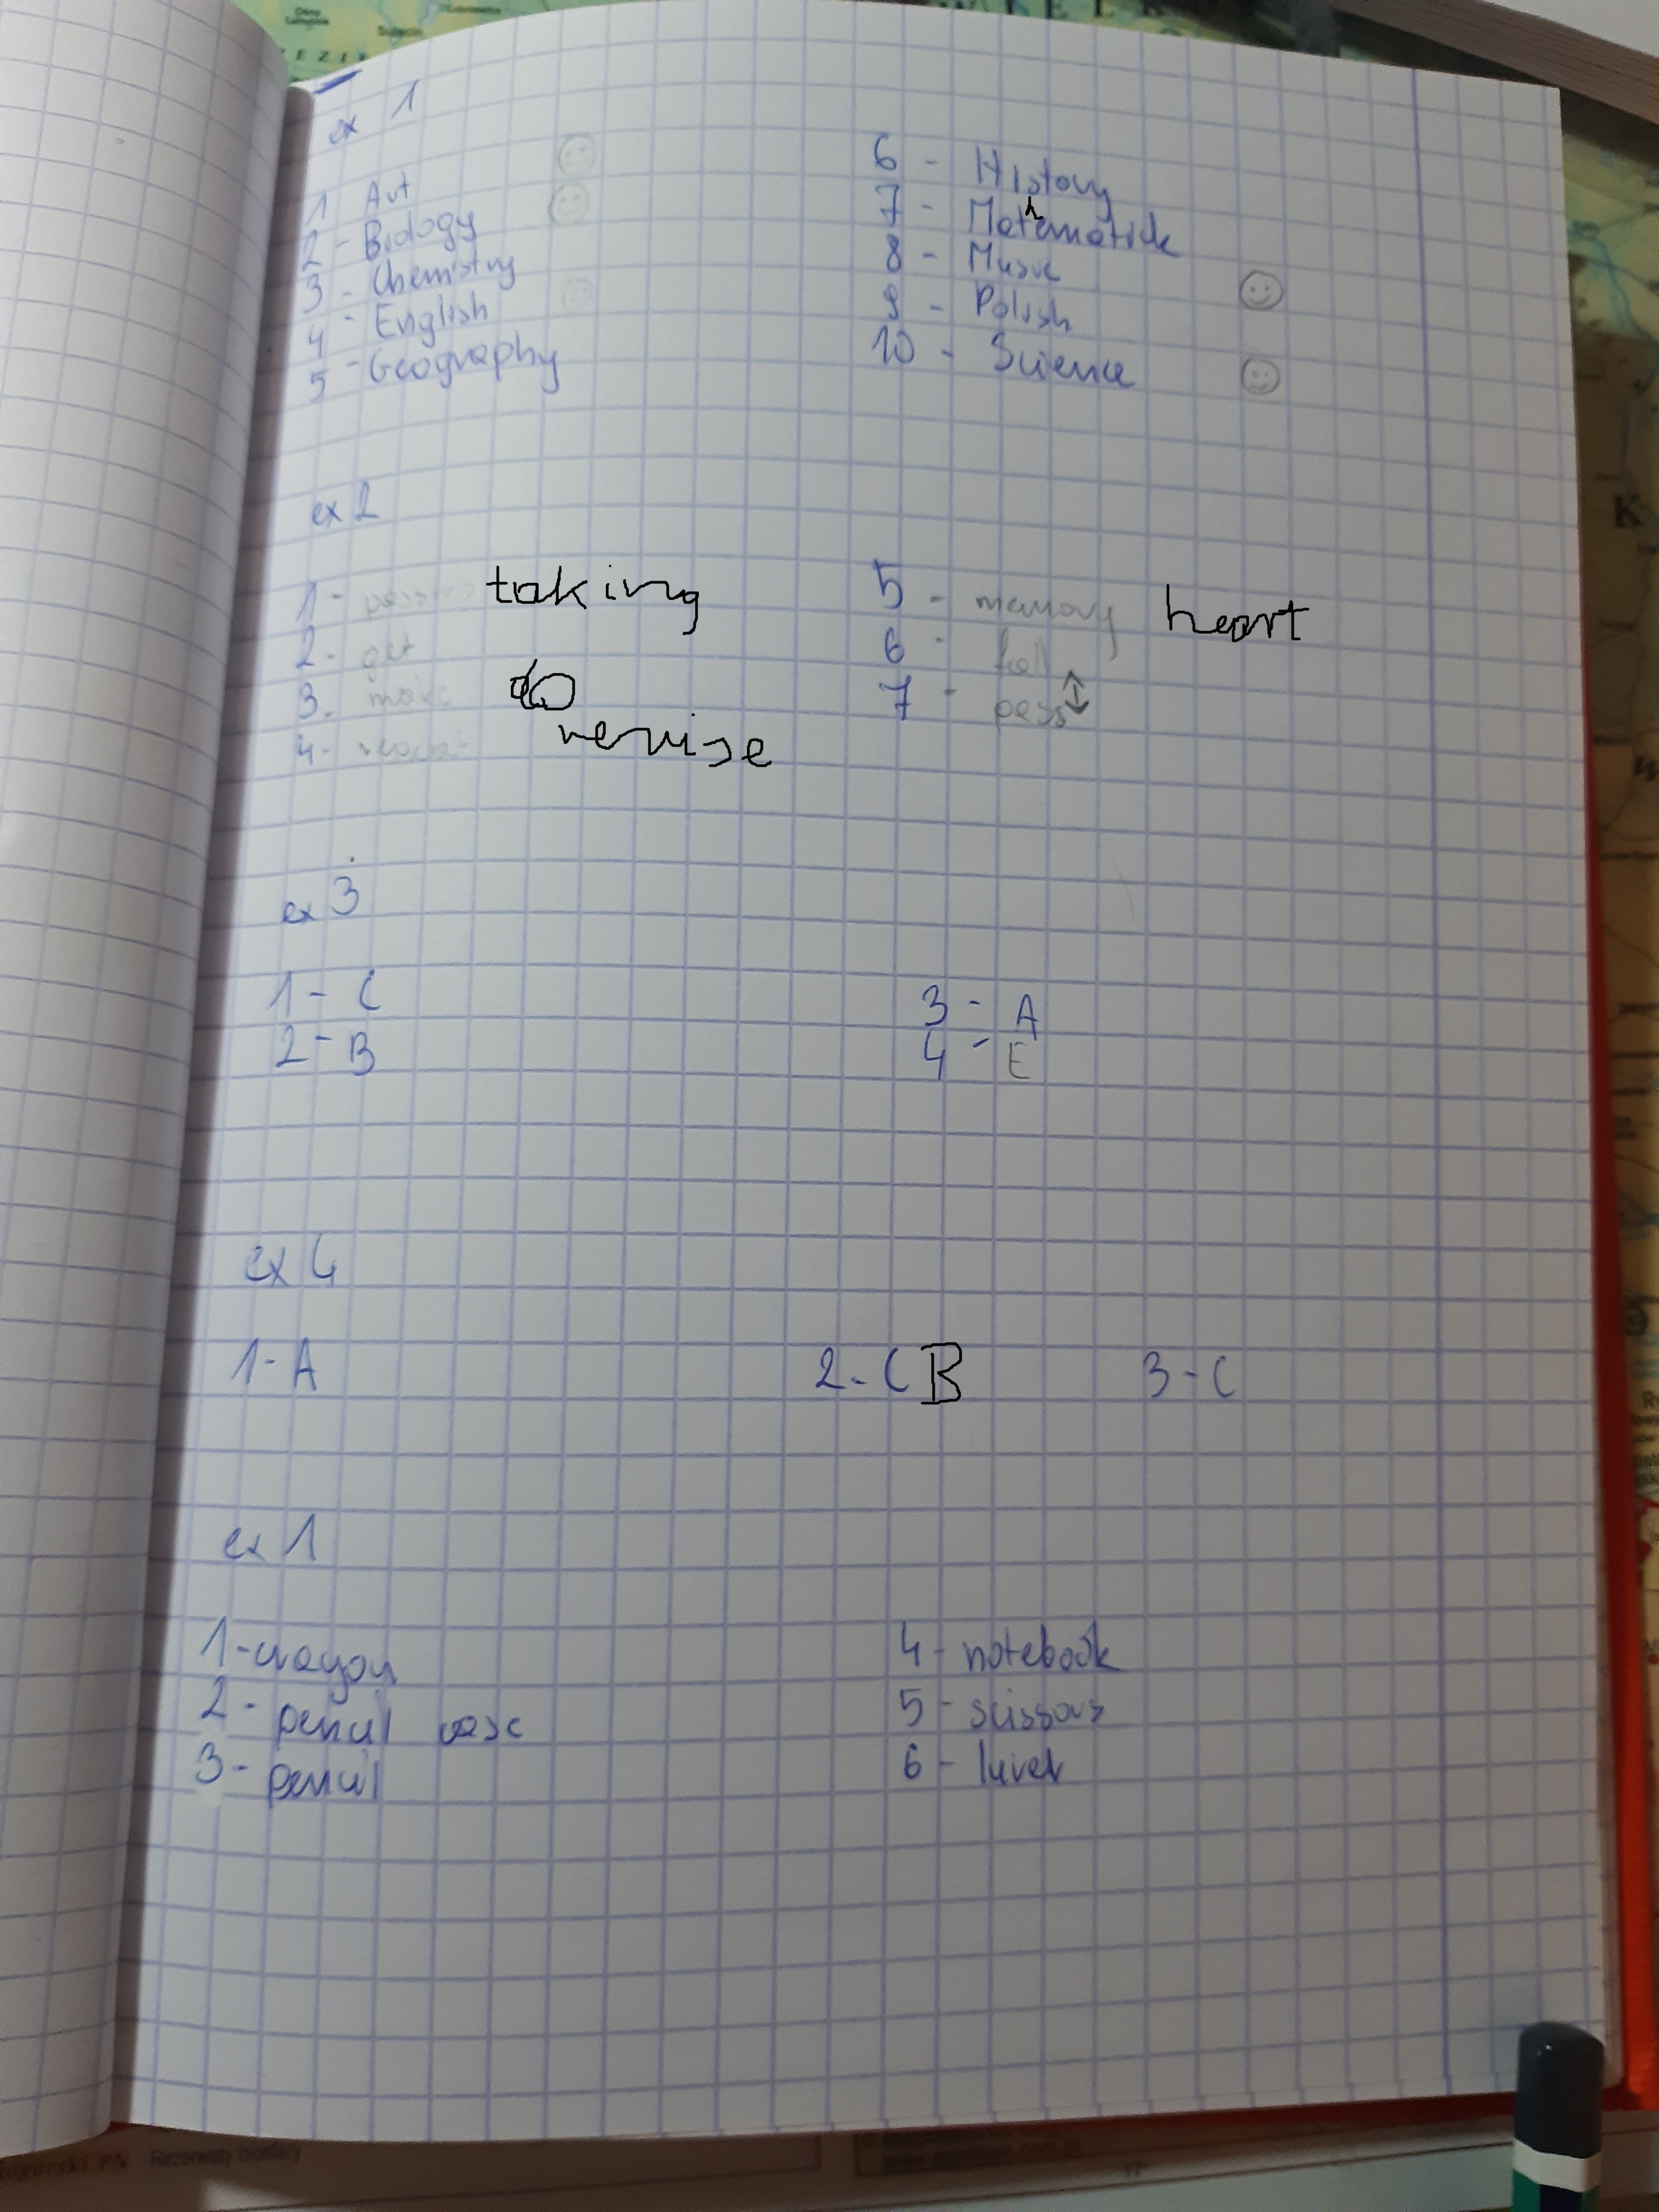 ex 1
1 Art
2 - Biology
3 - Chemistry
4 - English
5 - Geography
6 - History
7 - Mathematick
8 - Music
9 - Polish
10 - Science
ex 2
1 - taking
2. get
3. make do
4. revise
5 - memory heart
6 - fail
7 - pass
ex 3
1 - C
2 - B
3 - A
4 - E
ex 4
1 - A
2 - C B
3 - C
ex 1
1 - crayon
2 - pencil case
3 - pencil
4 - notebook
5 - scissors
6 -
Rezerwaty biosfery